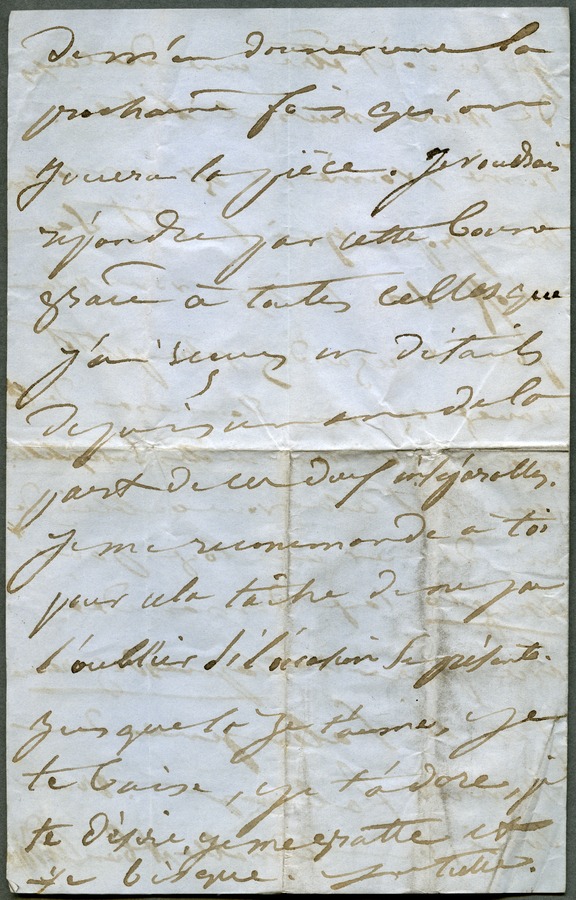 De m'en donner une la
prochaine fois qu'on
jouera la pièce. Je voudrais
répondre par cette bonne
grâce à toutes celles que
j'ai reçues en détails
depuis un an de la
part de ces deux inséparables.
Je me recommande à toi
pour cela tâche de ne pas
l'oublier si l'occasion se présente.
Jusque là je t'aime, je
te baise, je t'adore, je
te désire, je me gratte et
je bisque.